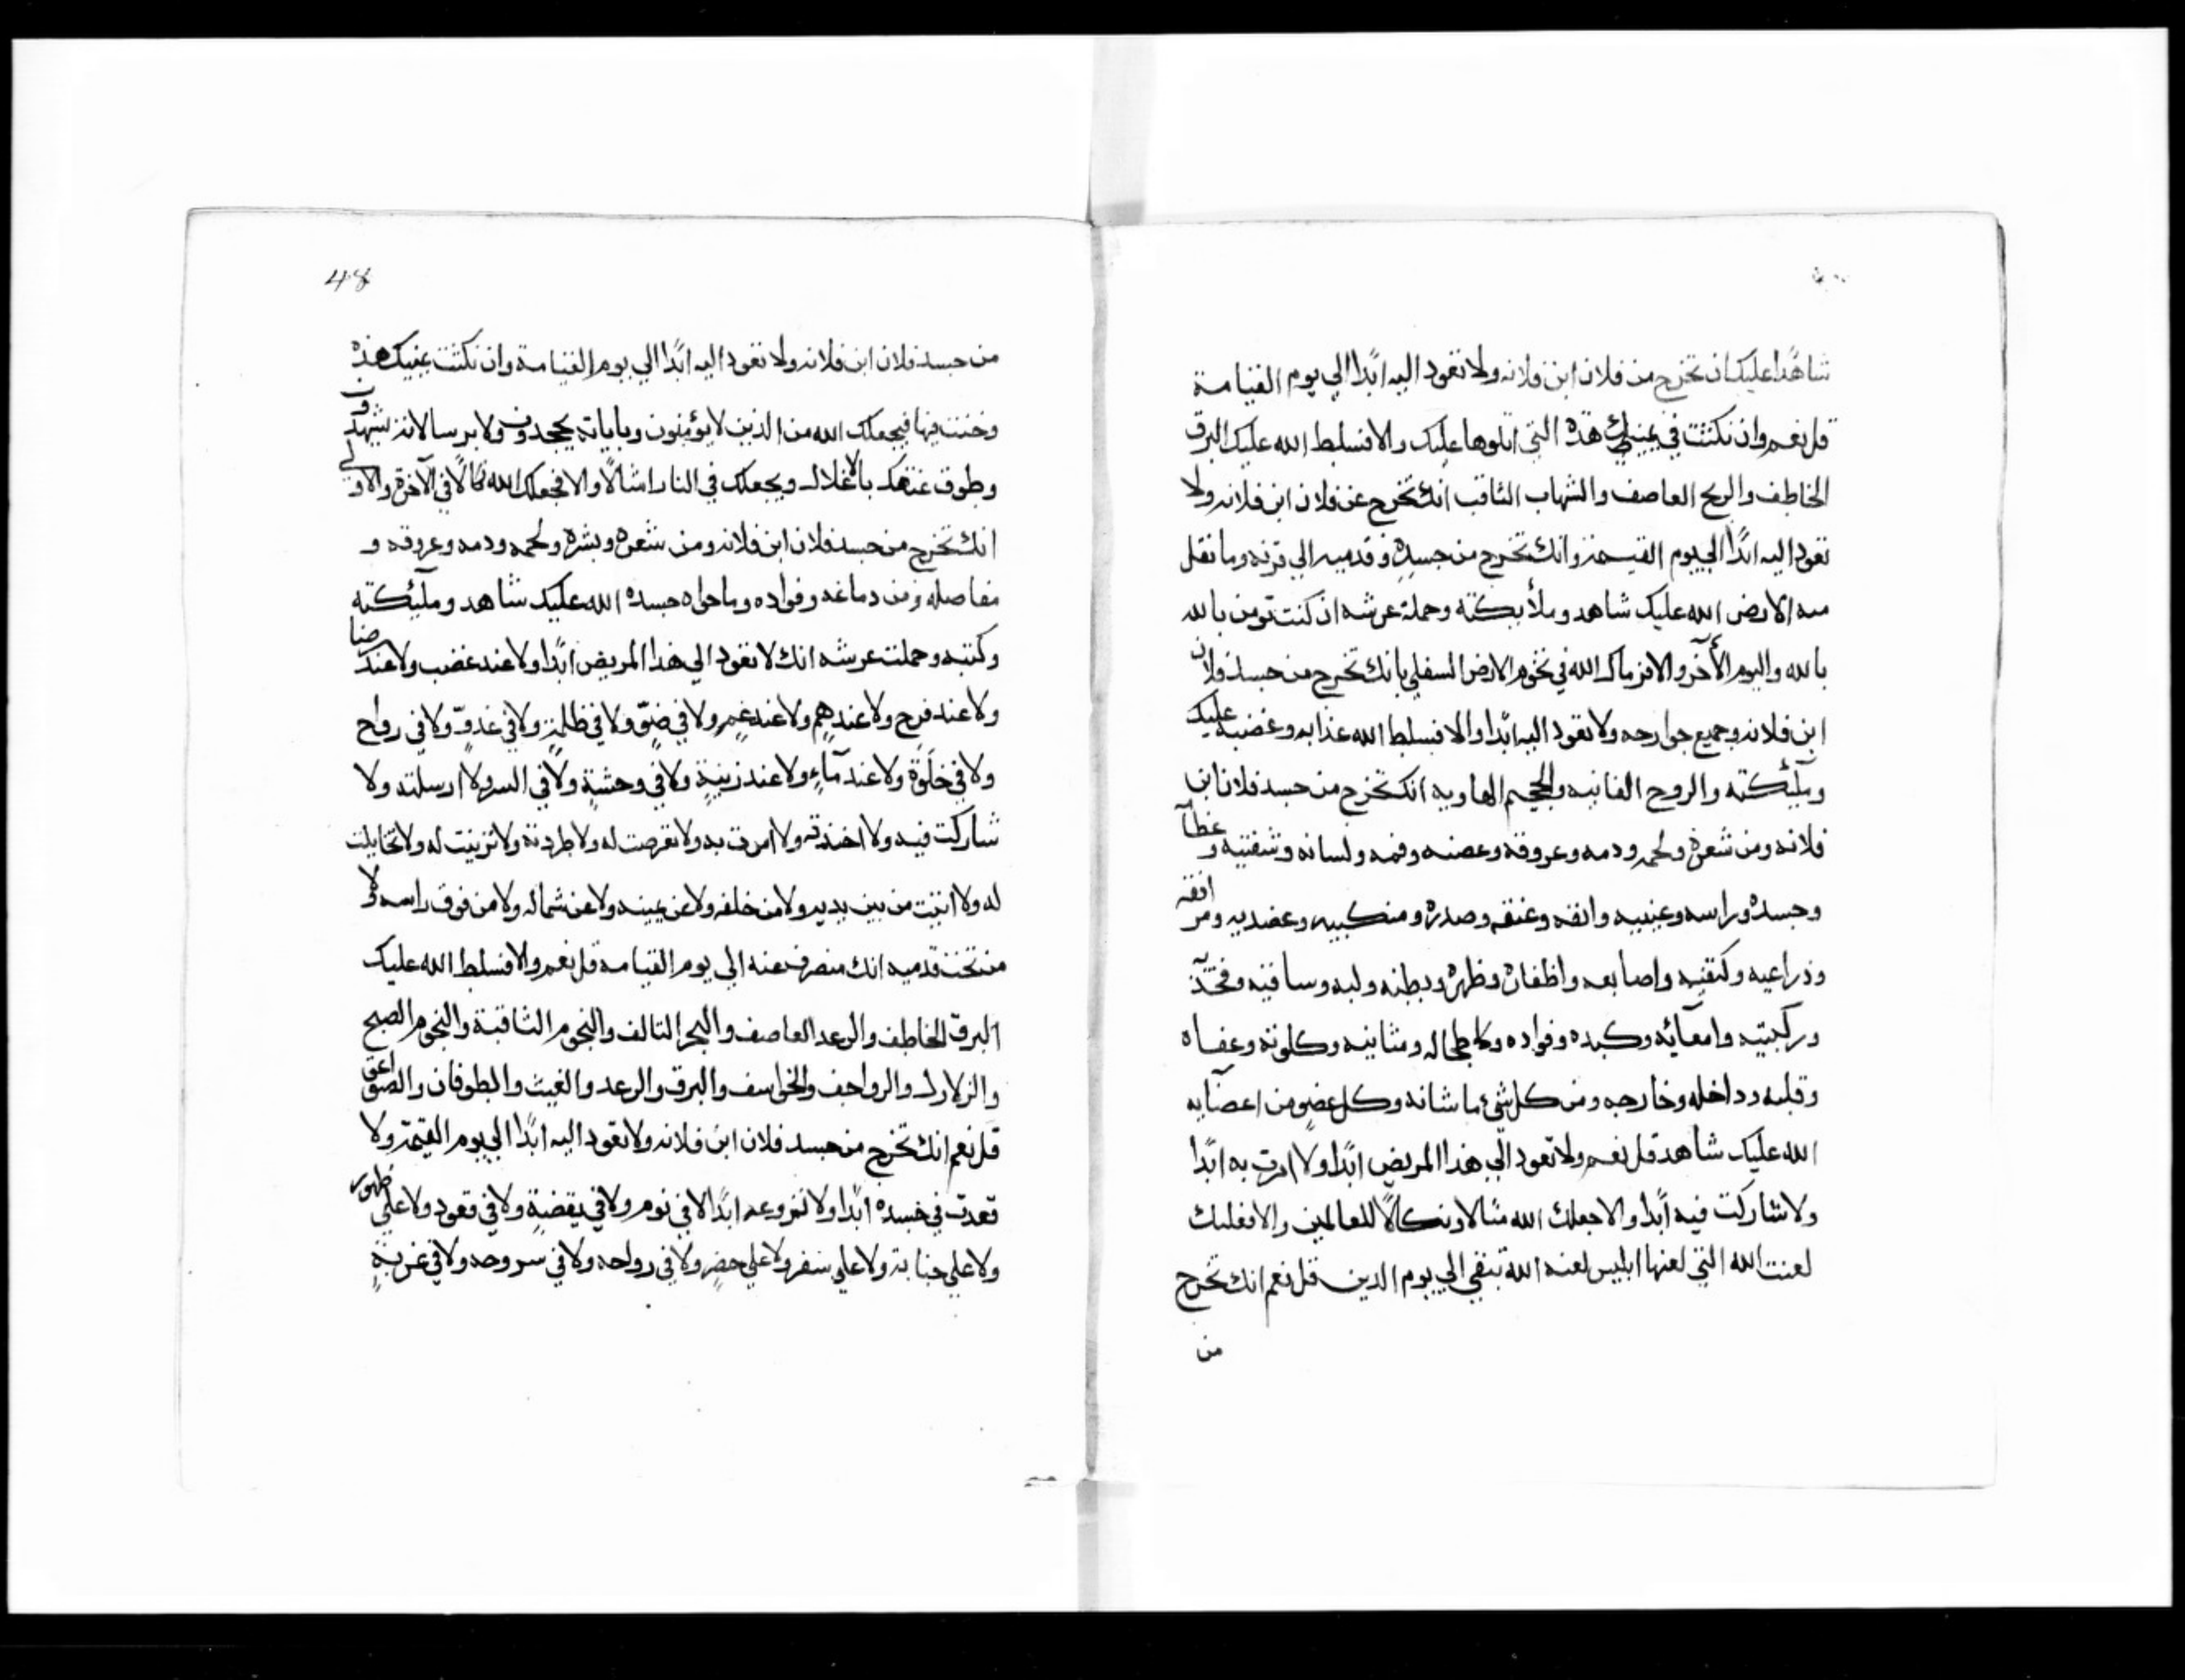 شاهدًا عليك ان تخرج من فلان ابن فلانه ولا تعود اليه ابدًا الي يوم القيامة
قل نعم وان نكثت في يمينك هذه التي اتلوها عليك والا فسلط الله عليك البرق
الخاطف والريح العاصف والشهاب الثاقب انك تخرج عن فلان ابن فلانه ولا
تعود اليه ابدًا الي يوم القيمة وانك تخرج من جسده وقدميه الي قرنه وما تقل
منه الارض الله عليك شاهد وملأيكته وحملة عرشه ان كنت تومن بالله
بالله واليوم الأخر والا فرماك الله في تخوم الارض السفلي بانك تخرج من جسد فلان
ابن فلانه وجميع جوارحه ولا تعود اليه ابدًا والا فسلط الله عذابه وغضبه عليك
وملئكته والروح الفانيه والجحيم الهاويه انك تخرج من جسد فلان ابن
فلانه ومن شعره ولحمه ودمه وعروقه وعصبه وفمه ولسانه وشفتيه و عظا
وجسده وراسه وعينيه وانفه وعنقه وصدره ومنكبيه وعضديه ومر افقه
وذراعيه وكتفيه واصابعه واظفاره وظهره وبطنه ولبه وساقيه وفخذ
وركبتيه وامعآئه وكبده وفواده وطحاله ومثانيه وكلوته وعفاه
وقلبه وداخله وخارجه ومن كل شيء ما شانه وكل عضو من اعضآيه
الله عليك شاهد قل نعم ولا تعود الي هذا المريض ابدًا ولا امرت به ابدًا
ولا شاركت فيه ابدًا والا جعلك الله مثالا ونكالًا للعالمين والا فعليك
لعنت الله التي لعنها ابليس لعنه الله تبقي الي يوم الدين قل نعم انك تخرج
من
48
من جسد فلان ابن فلانه ولا تعود اليه ابدًا الي يوم القيامة وان نكثت يمينك هذه
وخنت فيها فيجعلك الله من الذين لايؤمنون وباياته يجحدون ولا برسالاته يشهدون
وطوق عنقك بالاغلال ويجعلك في النار اشالًا والا فجعلك الله نكالًا في الآخرة والاولي
انك تخرج من جسد فلان ابن فلانه ومن شعره وبشره ولحمه ودمه وعروقه و
مفاصله ومن دماغه وفواده وما حواه جسده الله عليك شاهد وملئكته
وكتبه وحملت عرشه انك لا تعود الي هذا المريض ابدًا ولا عند غضب ولا عند رضا
ولا عند فرح ولا عند هم ولا عند غم ولا في ضوّ ولا في ظلمة ولا في غدوّ ولا في رواح
ولا في خلوة ولا عند مآء ولا عند زينة ولا في وحشة ولا في السر ولا ارسلته ولا
شاركت فيه ولا اخذته ولا امرت به ولا تعرضت له ولا طردته ولا تزينت له ولا تخايلت
له ولا اتيت من بين يديه ولا من خلفه ولا عن يمينه ولا عن شماله ولا من فوق راسه ولا
من تحت قدميه انك منصرف عنه الي يوم القيامه قل نعم والا فسلط الله عليك
البرق الخاطف والرعد العاصف والبحر التالف والنجوم الثاقبة والنجوم الصبح
والزلازل والرواجف والخواسف والبرق والرعد والغيث والطوفان والصواعق
قل نعم انك تخرج من جسد فلان ابن فلانه ولا تعود اليه ابدًا الي يوم القيمة ولا
قعدت في جسده ابدًا ولا تفزوعه ابدًا لا في نوم ولا في يقضة ولا في قعود ولا علي ظهور
ولا علي جنابة ولا علي سفر ولا علي حضر ولا في رواحه ولا في سروحه ولا في غربة